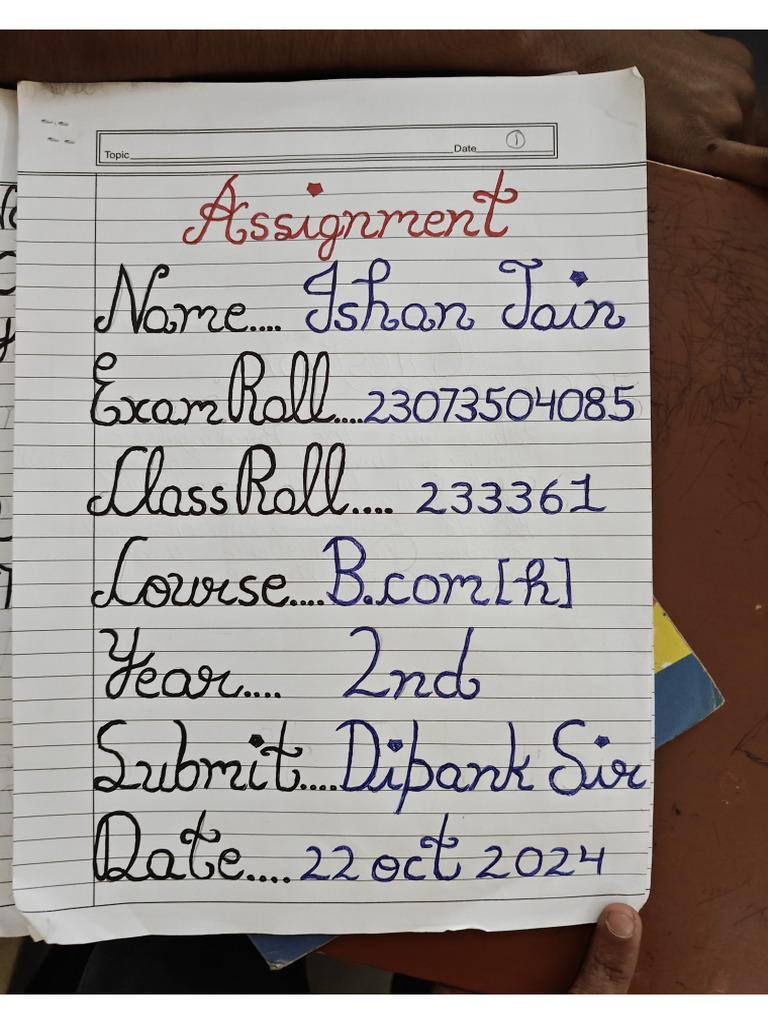 Topic Date 1
Assignment
Name.... Ishan Jain
Exam Roll....23073504085
Class Roll.... 233361
Course....B.com[h]
Year.... 2nd
Submit....Dipank Sir
Date.... 22 oct 2024